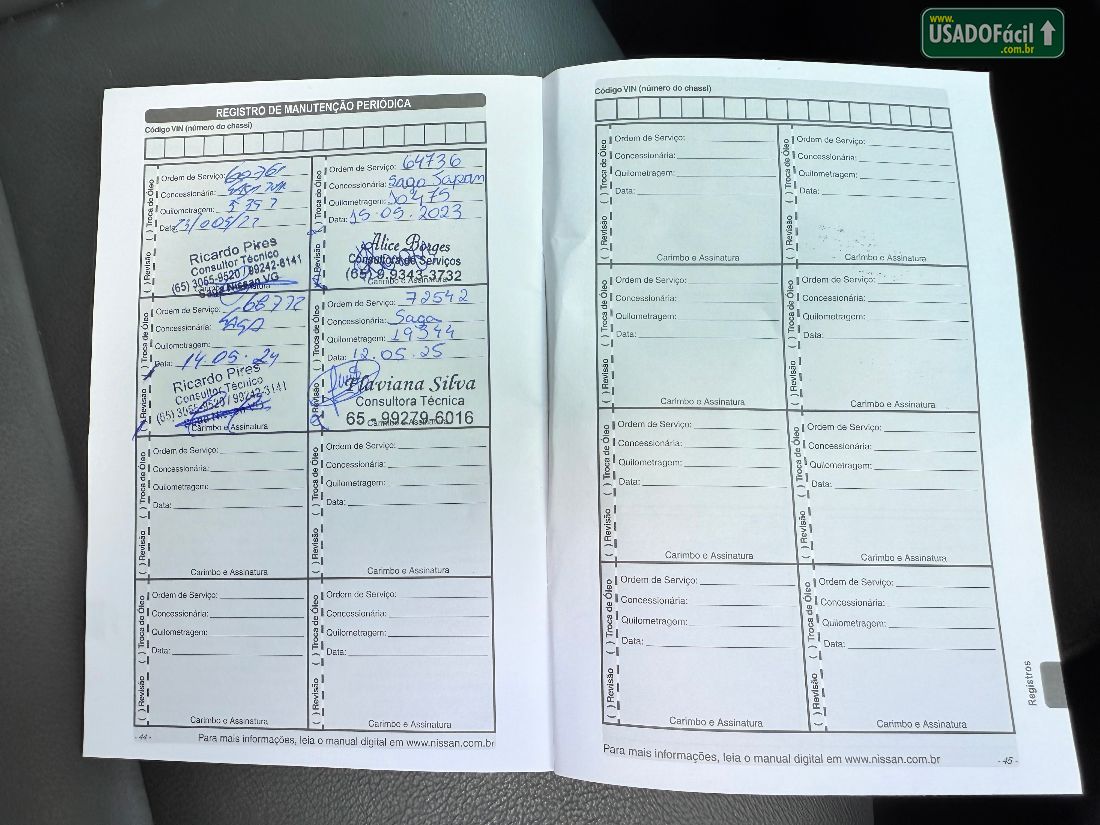 www.
USADOFácil
.com.br
REGISTRO DE MANUTENÇÃO PERIÓDICA
Código VIN (número do chassi)
( ) Revisão ( ) Troca de Óleo
Ordem de Serviço:
Concessionária:
Quilometragem:
Data:
Ricardo Pires
Consultor Técnico
(65) 3065-9520 / 99242-8141
Carimbo e Assinatura
( ) Revisão ( ) Troca de Óleo
Ordem de Serviço: 64736
Concessionária: Saga Japan
Quilometragem: 10475
Data: 15.05.2023
Alice Borges
Consultora de Serviços
(65) 9.9343-3732
Carimbo e Assinatura
( ) Revisão ( ) Troca de Óleo
Ordem de Serviço: 68772
Concessionária: SAGA
Quilometragem:
Data: 14.05.24
Ricardo Pires
Consultor Técnico
(65) 3065-9520 / 99242-8141
Carimbo e Assinatura
( ) Revisão ( ) Troca de Óleo
Ordem de Serviço: 72542
Concessionária: Saga
Quilometragem: 19344
Data: 12.05.25
Flaviana Silva
Consultora Técnica
65 - 99279-6016
Carimbo e Assinatura
( ) Revisão ( ) Troca de Óleo
Ordem de Serviço:
Concessionária:
Quilometragem:
Data:
Carimbo e Assinatura
( ) Revisão ( ) Troca de Óleo
Ordem de Serviço:
Concessionária:
Quilometragem:
Data:
Carimbo e Assinatura
( ) Revisão ( ) Troca de Óleo
Ordem de Serviço:
Concessionária:
Quilometragem:
Data:
Carimbo e Assinatura
( ) Revisão ( ) Troca de Óleo
Ordem de Serviço:
Concessionária:
Quilometragem:
Data:
Carimbo e Assinatura
- 44 -
Para mais informações, leia o manual digital em www.nissan.com.br
Código VIN (número do chassi)
( ) Revisão ( ) Troca de Óleo
Ordem de Serviço:
Concessionária:
Quilometragem:
Data:
Carimbo e Assinatura
( ) Revisão ( ) Troca de Óleo
Ordem de Serviço:
Concessionária:
Quilometragem:
Data:
Carimbo e Assinatura
( ) Revisão ( ) Troca de Óleo
Ordem de Serviço:
Concessionária:
Quilometragem:
Data:
Carimbo e Assinatura
( ) Revisão ( ) Troca de Óleo
Ordem de Serviço:
Concessionária:
Quilometragem:
Data:
Carimbo e Assinatura
( ) Revisão ( ) Troca de Óleo
Ordem de Serviço:
Concessionária:
Quilometragem:
Data:
Carimbo e Assinatura
( ) Revisão ( ) Troca de Óleo
Ordem de Serviço:
Concessionária:
Quilometragem:
Data:
Carimbo e Assinatura
( ) Revisão ( ) Troca de Óleo
Ordem de Serviço:
Concessionária:
Quilometragem:
Data:
Carimbo e Assinatura
( ) Revisão ( ) Troca de Óleo
Ordem de Serviço:
Concessionária:
Quilometragem:
Data:
Carimbo e Assinatura
Registros
Para mais informações, leia o manual digital em www.nissan.com.br
- 45 -